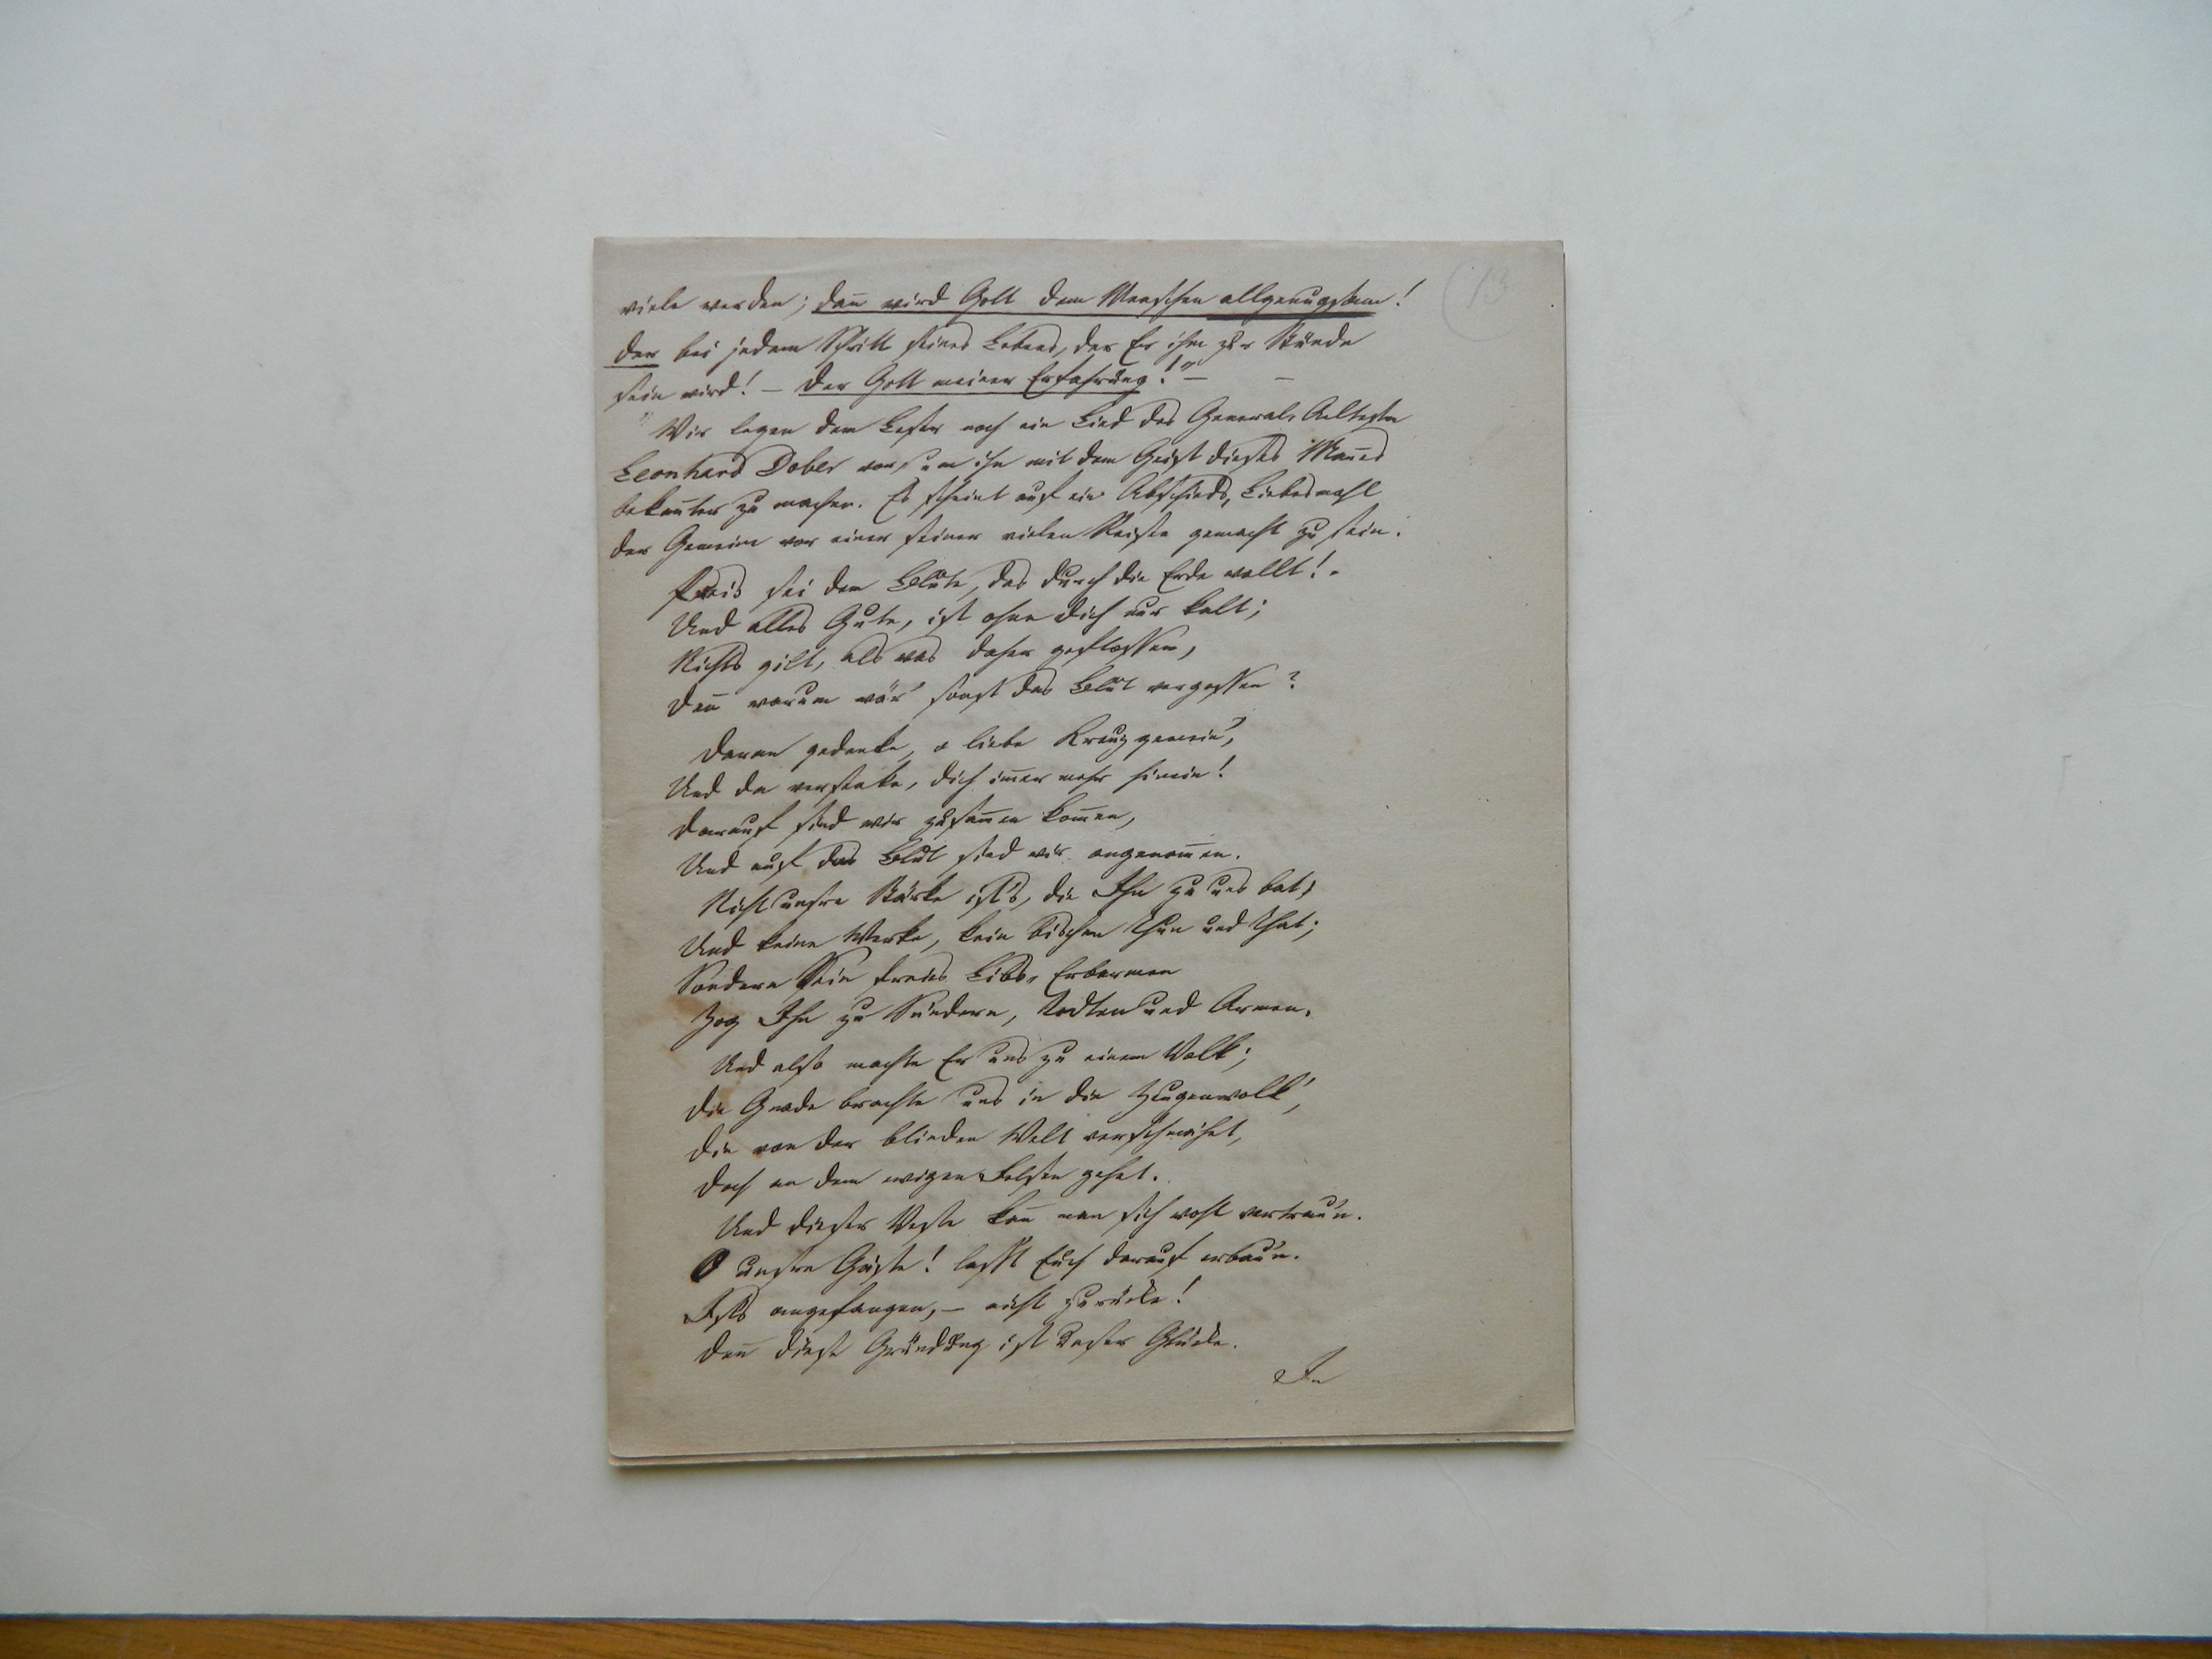 13
viele werden; dan̄ wird Gott dem Menschen allgenugsam!
der bei jedem Schritt seines Lebens, der Er ihm zur Stunde
sein wird! – Der Gott meiner Erfahrung!" – –
Wir legen dem Leser noch ein Lied des General-Aeltesten
Leonhard Dober vor, um ihn mit dem Geist dieses Man̄es
bekan̄ter zu machen. Es scheint auf ein Abschieds-Liebesmahl
der Gemeine vor einer seiner vielen Reisen gemacht zu sein.
Preis sei dem Blute, das durch die Erde wallt!
Und alles Gute, ist ohne dich nur kalt;
Nichts gilt, als was daher geflossen,
Den̄ warum wär' sonst das Blut vergossen?
Daran gedenke, o liebe Kreuzgemein',
Und da versenke, dich im̄er mehr hinein!
Darauf sind wir zusam̄en kom̄en,
Und auf das Blut sind wir angenom̄en.
Nicht unsre Stärke ist's, die Ihn zu uns bat,
Und keine Werke, kein bischen Thun und That;
Sondern Sein freies Liebs-Erbarmen
Zog Ihn zu Sündern, Todten und Armen.
Und also machte Er uns zu einem Volk;
Die Gnade brachte uns in die Zeugenwolk',
Die von der blinden Welt verschmähet,
Doch an dem ewigen Felsen gehet.
Und dieser Veste kan̄ man sich wohl vertrau'n.
O unsre Gäste! lasst Euch darauf erbau'n.
Ists angefangen, – nicht zurücke!
Den̄ diese Gründung ist unser Glücke.
In